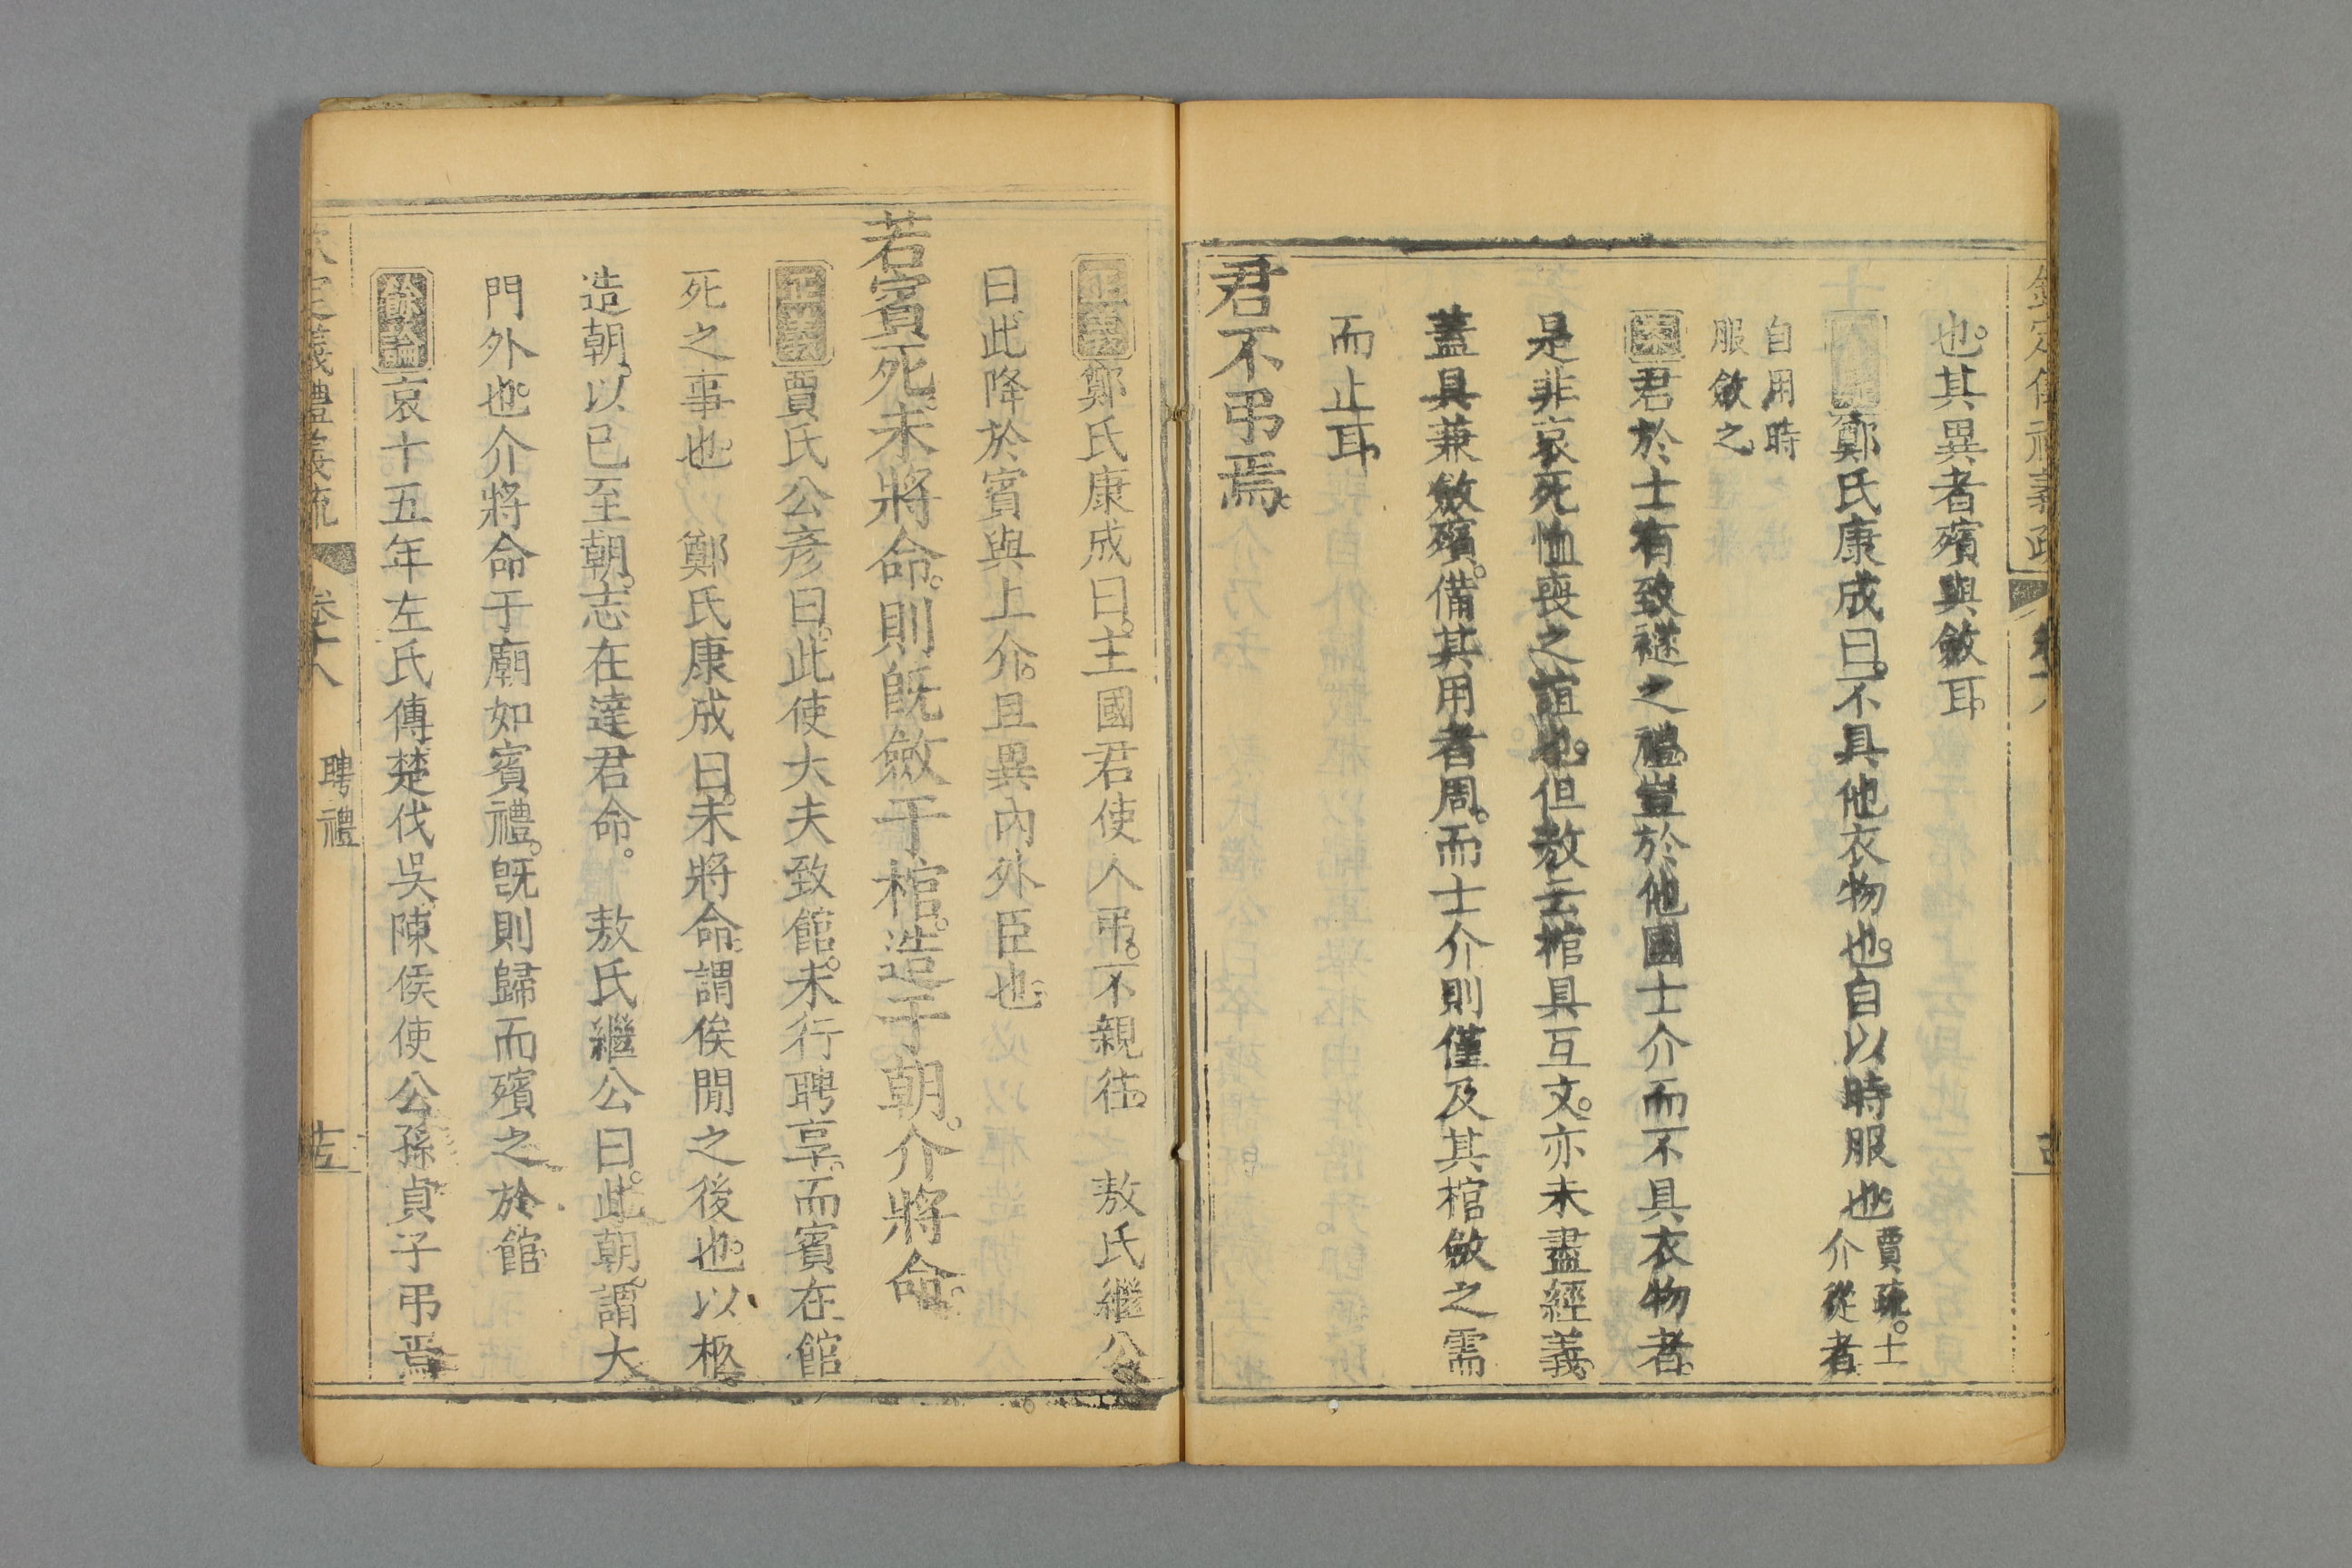 也。其異者殯與斂耳。
鄭氏康成曰。不具他衣物也。自以時服也。賈疏。士介從者
自用時服斂之。
案君於士有致襚之禮。豈於他國士介而不具衣物者。
是非哀死恤喪之誼也。但敖云棺具互文。亦未盡經義。
蓋具兼斂殯。備其用者周。而士介則僅及其棺斂之需
而止耳。
君不弔焉。
正義鄭氏康成曰。主國君使人弔。不親往。 敖氏繼公
曰。此降於賓與上介。且異內外臣也。
若賓死。未將命。則旣斂于棺。造于朝。介將命。
正義賈氏公彥曰。此使大夫致館。未行聘享。而賓在館
死之事也。 鄭氏康成曰。未將命。謂俟閒之後也。以柩
造朝。以已至朝。志在達君命。 敖氏繼公曰。此朝。謂大
門外也。介將命于廟如賓禮。旣則歸而殯之於館。
餘論哀十五年左氏傳楚伐吳。陳侯使公孫貞子弔焉
欽定儀禮義疏 卷十八 聘禮 十五